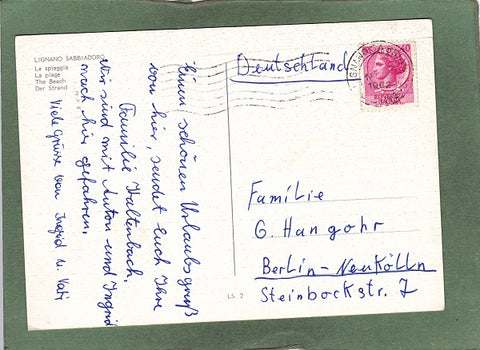 LIGNANO SABBIADORO
La spiaggia
La plage
The Beach
Der Strand
Einen schönen Urlaubsgruß
von hier, sendet euch Ihre
Familie Kaltenbach.
Wir sind mit Anton und Ingrid
nach hier gefahren.
Viele Grüsse von Ingrid u. Kati
Deutschland
1962
Familie
G. Hangohr
Berlin-Neukölln
Steinbockstr. 7
LS. 2